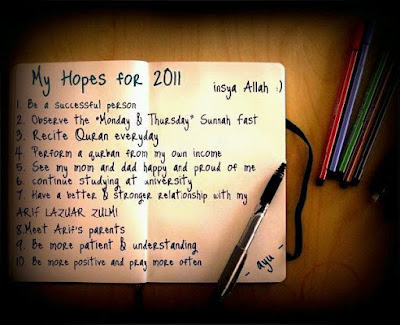 My Hopes for 2011
insya Allah :)
1. Be a successful person
2. Observe the "Monday & Thursday" Sunnah fast
3. Recite Quran everyday
4. Perform a qurban from my own income
5. See my mom and dad happy and proud of me
6. continue studying at university
7. Have a better & stronger relationship with my
ARIF LAZUAR ZULMI
8.Meet Arif's parents
9. Be more patient & understanding
10. Be more positive and pray more often
- ayu -